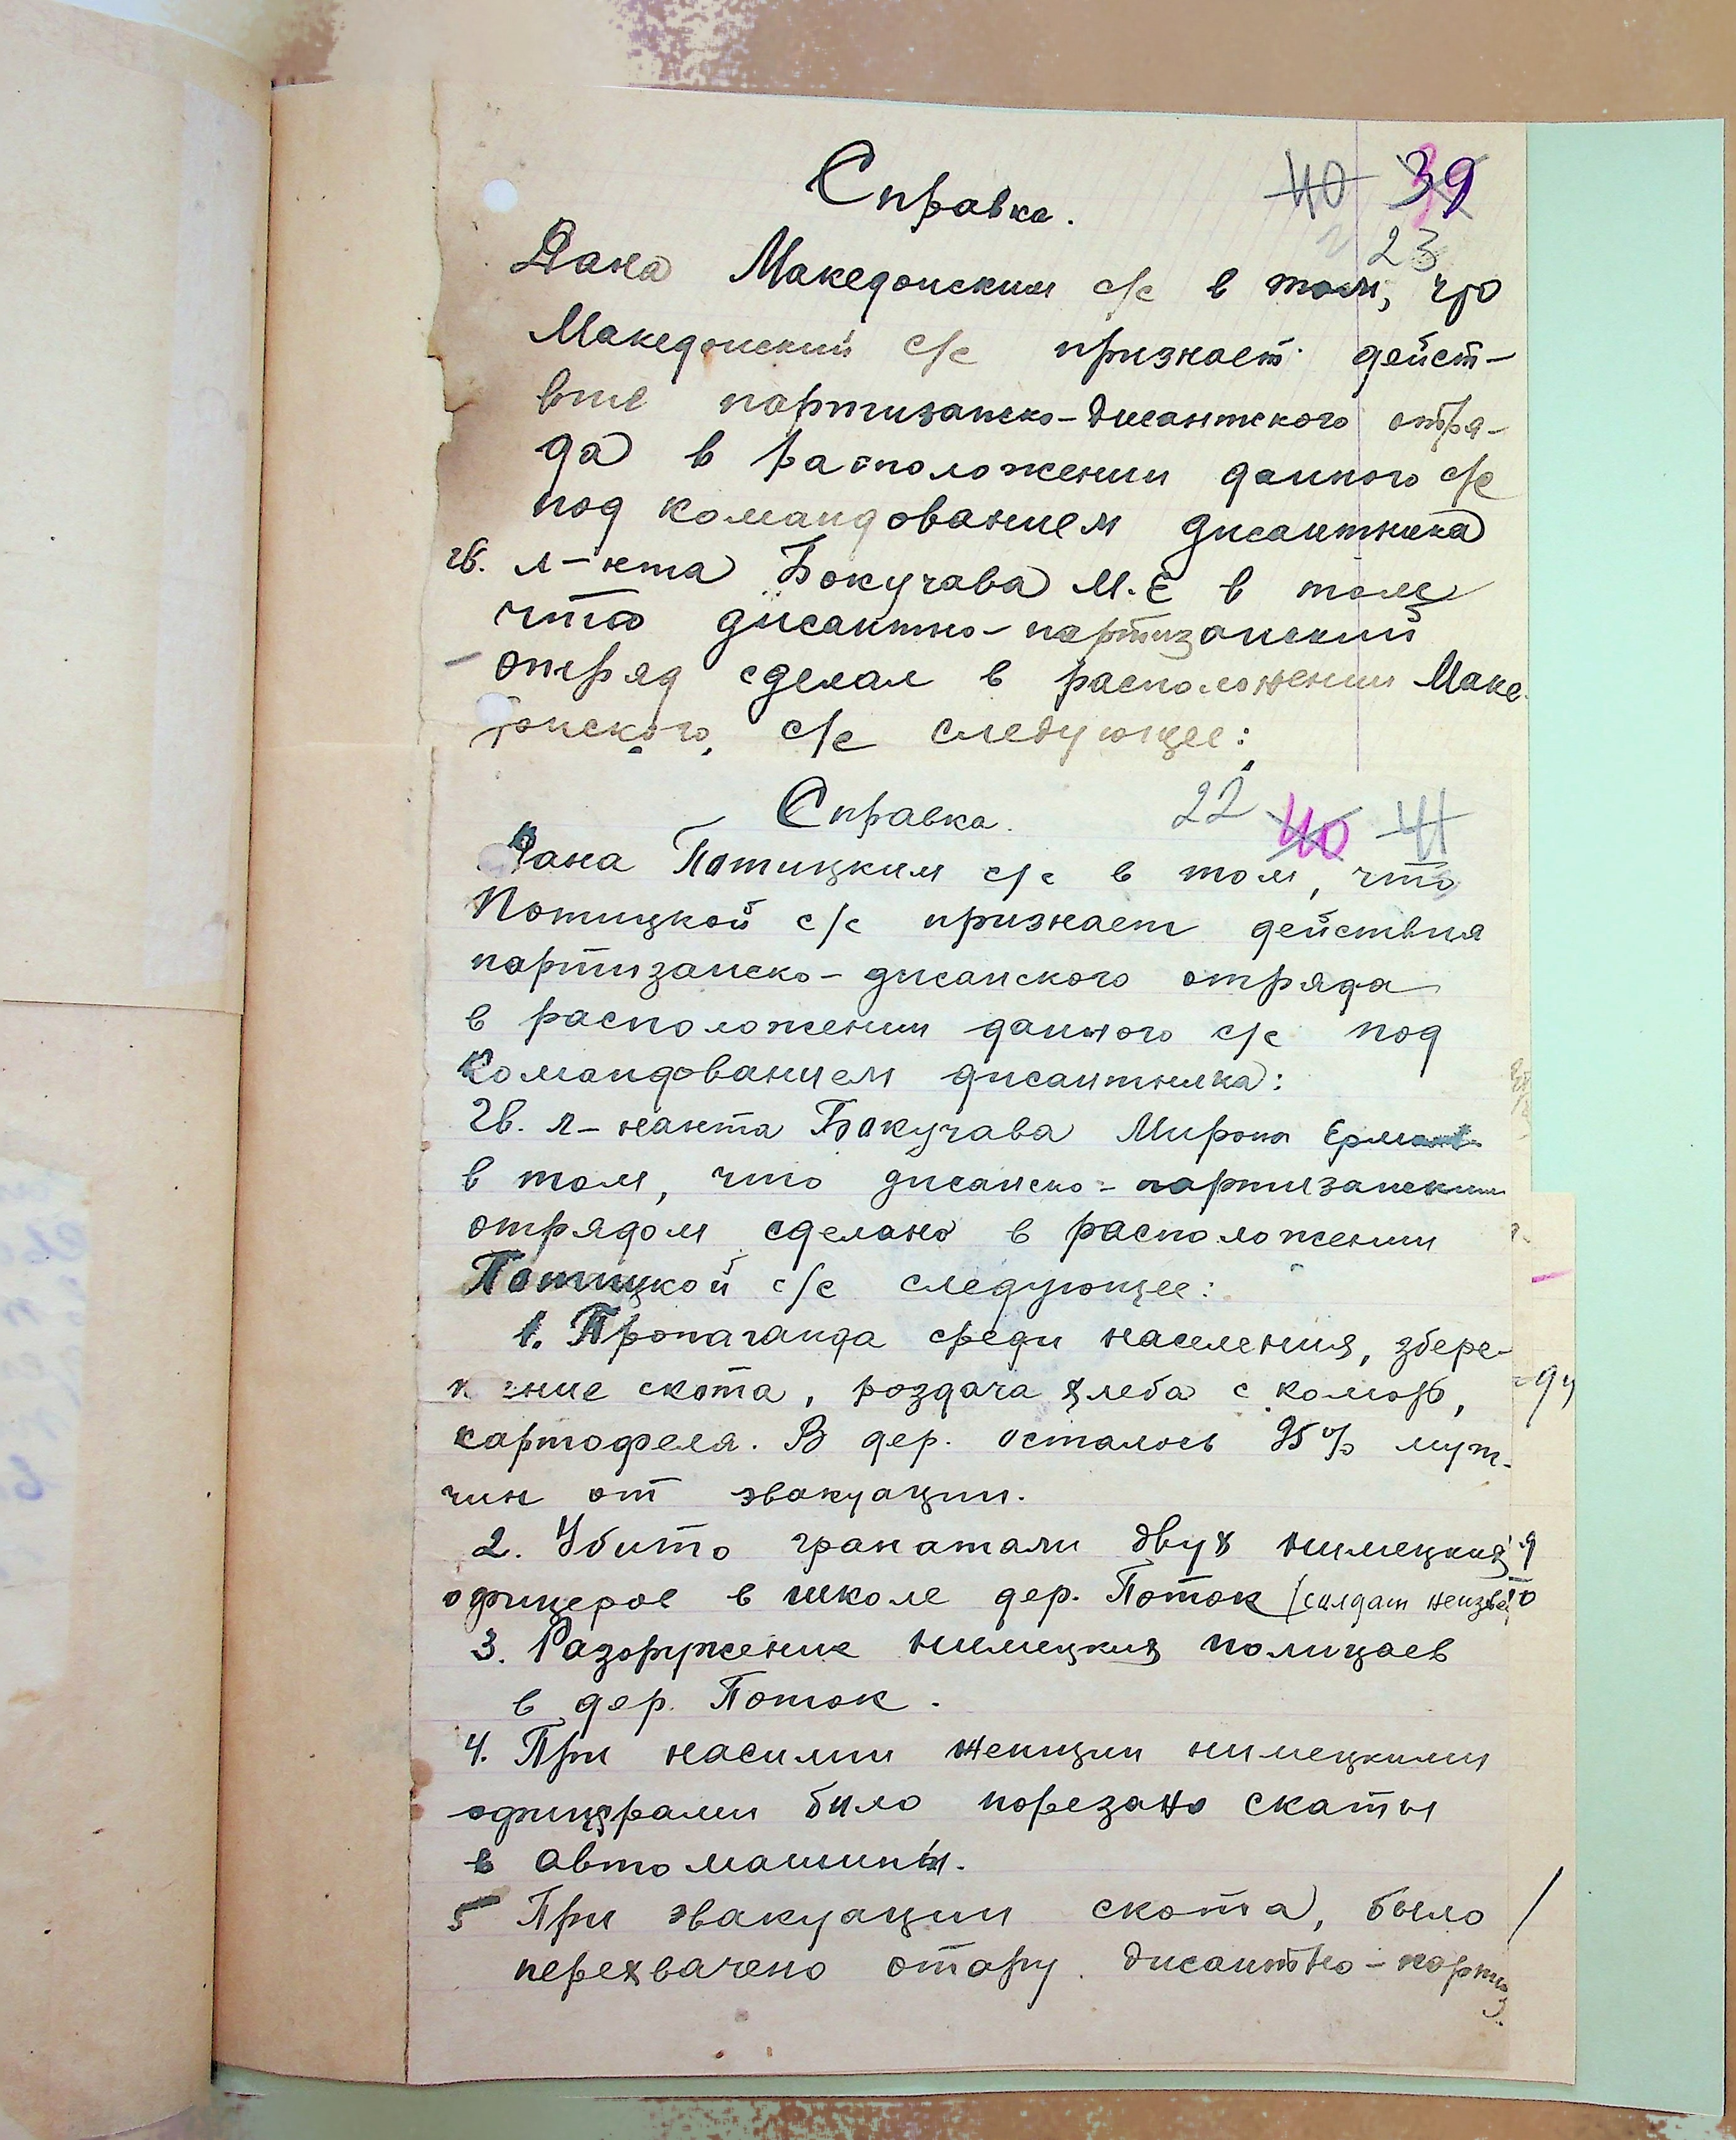 Справка. 40 39
23
Дана Македонским с/с в том, что
Македонский с/с признает дейст-
вие партизанско-дисантского отря-
да в расположении данного с/с
под командованием дисантника
гв. л-нта Бокучава М.Е в том
что дисантно-партизанский
отряд сделал в расположении Маке-
донского с/с следующее:
Справка. 22 40 41
Дана Потицким с/с в том, что
Потицкой с/с признает действия
партизанско-дисанского отряда
в расположении данного с/с под
командованием дисантника:
Гв. л-нанта Бокучава Мирона
в том, что дисанско-партизанским
отрядом сделано в расположении
Потицкой с/с следующее:
1. Пропаганда среди населения, збере-
ние скота, роздача хлеба с комор,
картофеля. В дер. осталось 95% муж-
чин от эвакуации.
2. Убито гранатами двух нимецких
офицеров в школе дер. Поток (силдат неизве
3. Разоружение нимецких полицаев
в дер. Поток.
4. При насилии женщин нимецкими
офицерами било порезано скаты
в автомашины.
5 При эвакуации скота, было
перехвачено отару дисантно-партиз.